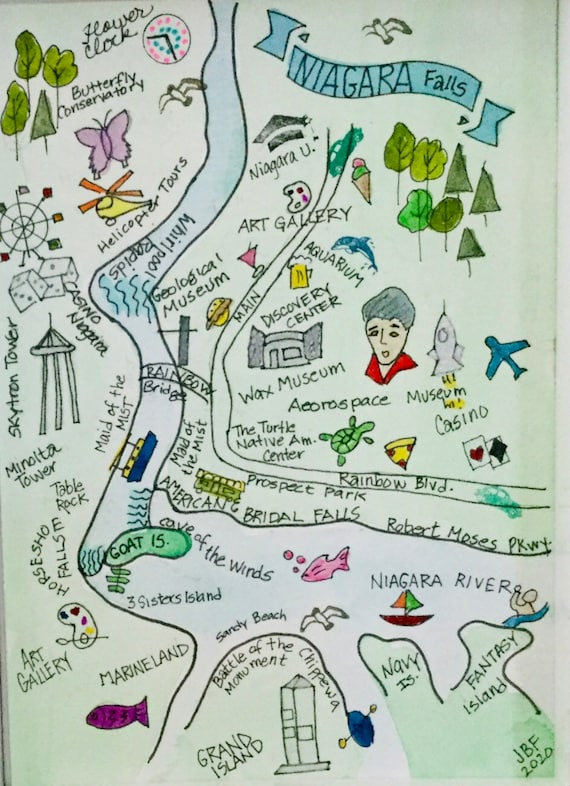 Flower
Clock
NIAGARA Falls
Butterfly
Conservatory
Niagara U.
Helicopter Tours
ART GALLERY
Whirlpool
Rapids
AQUARIUM
Geological
Museum
MAIN
CASINO
Niagara
DISCOVERY
CENTER
Skytron Tower
RAINBOW
Bridge
Wax Museum
Aeorospace Museum
Casino
Maid of the
MIST
Maid of
the Mist
The Turtle
Native Am.
Center
Minolta
Tower
Table
Rock
Prospect Park
Rainbow Blvd.
AMERICAN &
BRIDAL FALLS
Robert Moses PKwy
HORSESHOE
FALLS
GOAT IS.
cave of the winds
3 Sisters Island
NIAGARA RIVER
Sandy Beach
ART
GALLERY
MARINELAND
Battle of the Chippewa
Monument
Navy
IS.
FANTASY
island
GRAND
ISLAND
JBF
2020